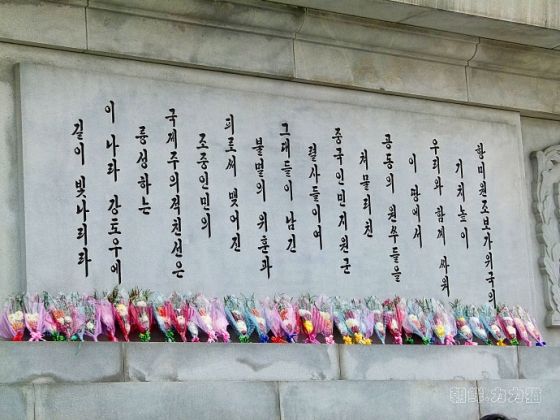 항미원조보가위국의
기치높이
우리와 함께 싸워
이 땅에서
공동의 원쑤들을
쳐물리친
중국인민지원군
렬사들이여
그대들이 남긴
불멸의 위훈과
피로써 맺어진
조중인민의
국제주의적친선은
륭성하는
이 나라 강토우에
길이 빛나리라
朝鲜·力力猫